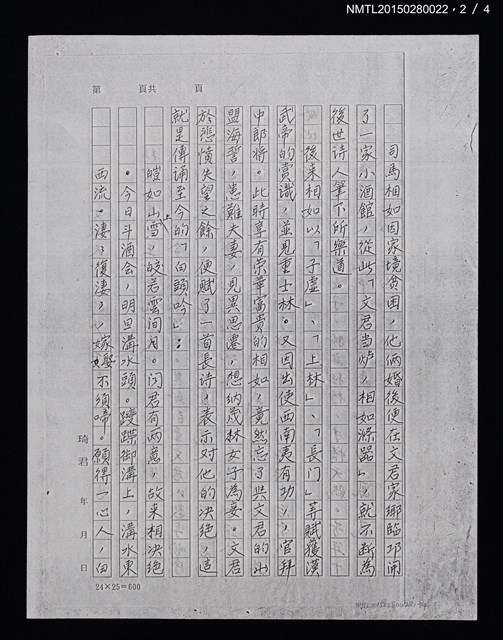 NMTL20150280022，2 / 4
第　頁共　頁
司馬相如因家境貧困，他倆婚後便在文君家鄉臨邛開
了一家小酒館，從此「文君当炉，相如滌器」，就不断為
後世诗人筆下所樂道。
後来相如以「子虛」、「上林」、「長门」等赋獲漢
武帝的赏識，並見重士林。又因出使西南夷有功，官拜
中郎将。此時享有荣華富貴的相如，竟然忘了與文君的山
盟海誓，患難夫妻，見異思遷，想纳茂林女子為妾。文君
於悲憤失望之餘，便赋了一首長诗，表示对他的决绝，這
就是傳诵至今的「白頭吟」：
皚如山上雪，皎若雲间月。闻君有两意，故来相决绝
。今日斗酒会，明旦溝水頭。躞蹀御溝上，溝水東
西流。淒淒復淒淒，嫁娶不须啼。願得一心人，白
琦君　年　月　日
24×25=600